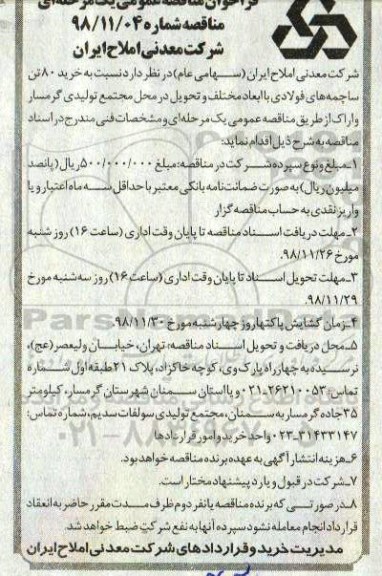 فراخوان مناقصه عمومی یک مرحله ای
مناقصه شماره ۹۸/۱۱/۰۴
شرکت معدنی املاح ایران
شرکت معدنی املاح ایران (سهامی عام) در نظر دارد نسبت به خرید ۸۰ تن
ساچمه های فولادی با ابعاد مختلف و تحویل در محل مجتمع تولیدی گرمسار
و اراک از طریق مناقصه عمومی یک مرحله ای و مشخصات فنی مندرج در اسناد
مناقصه به شرح ذیل اقدام نماید:
۱-مبلغ و نوع سپرده شرکت در مناقصه: مبلغ ۵۰۰/۰۰۰/۰۰۰ ریال (پانصد
میلیون ریال) به صورت ضمانت نامه بانکی معتبر با حداقل سه ماه اعتبار و یا
واریز نقدی به حساب مناقصه گزار
۲-مهلت دریافت اسناد مناقصه تا پایان وقت اداری (ساعت ۱۶) روز شنبه
مورخ ۹۸/۱۱/۲۶.
۳-مهلت تحویل اسناد تا پایان وقت اداری (ساعت ۱۶) روز سه شنبه مورخ
۹۸/۱۱/۲۹.
۴-زمان گشایش پاکتها روز چهارشنبه مورخ ۹۸/۱۱/۳۰.
۵-محل دریافت و تحویل اسناد مناقصه: تهران، خیابان ولیعصر (عج)،
نرسیده به چهارراه پارک وی، کوچه خاکزاد، پلاک ۲۱ طبقه اول شماره
تماس: ۲۶۲۱۰۰۵۳-۰۲۱ و یا استان سمنان شهرستان گرمسار، کیلومتر
۳۵ جاده گرمسار به سمنان، مجتمع تولیدی سولفات سدیم، شماره تماس:
۳۱۴۳۳۱۴۷-۰۲۳ واحد خرید و امور قراردادها
۶-هزینه انتشار آگهی به عهده برنده مناقصه خواهد بود.
۷-شرکت در قبول و یا رد پیشنهاد مختار است.
۸-در صورتی که برنده مناقصه یا نفر دوم ظرف مدت مقرر حاضر به انعقاد
قرارداد انجام معامله نشود سپرده آنها به نفع شرکت ضبط خواهد شد.
مدیریت خرید و قراردادهای شرکت معدنی املاح ایران